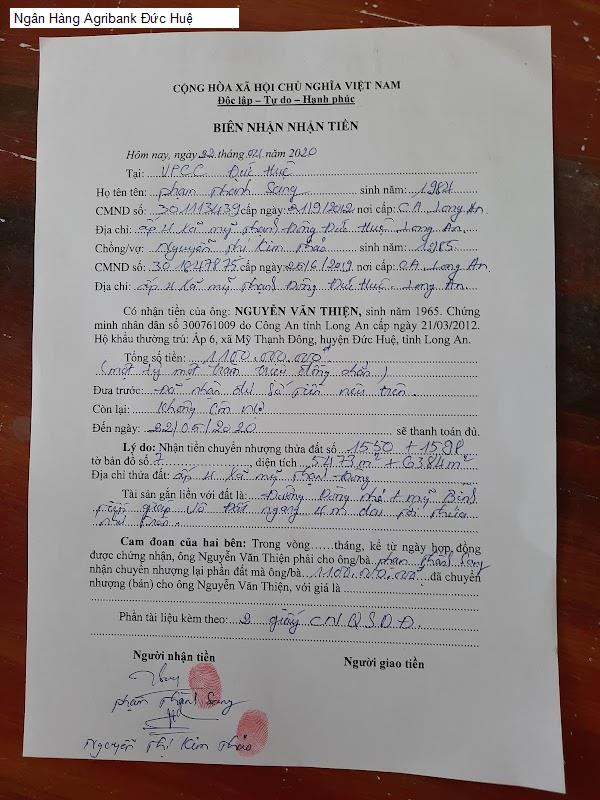 Ngân Hàng Agribank Đức Huệ
CỘNG HÒA XÃ HỘI CHỦ NGHĨA VIỆT NAM
Độc lập – Tự do – Hạnh phúc
BIÊN NHẬN NHẬN TIỀN
Hôm nay, ngày 22 tháng 04 năm 2020
Tại: VPCC Đức Huệ
Họ tên tên: Phạm Thành Sang sinh năm: 1984
CMND số: 301113439 cấp ngày 21/9/2012 nơi cấp: CA Long An
Địa chỉ: ấp 4 xã mỹ thạnh Đông Đức Huệ Long An
Chồng/vợ: Nguyễn Thị Kim Thảo sinh năm: 1985
CMND số: 301247875 cấp ngày 20/6/2019 nơi cấp: CA Long An
Địa chỉ: ấp 4 xã mỹ thạnh Đông Đức Huệ Long An
Có nhận tiền của ông: NGUYỄN VĂN THIỆN, sinh năm 1965. Chứng
minh nhân dân số 300761009 do Công An tỉnh Long An cấp ngày 21/03/2012.
Hộ khẩu thường trú: Ấp 6, xã Mỹ Thạnh Đông, huyện Đức Huệ, tỉnh Long An.
Tổng số tiền: 1100.000.000đ
(một tỷ một trăm triệu đồng chẵn)
Đưa trước: Đã nhận đủ số tiền nêu trên
Còn lại: Không còn nợ
Đến ngày: 22/05/2020 sẽ thanh toán đủ.
Lý do: Nhận tiền chuyển nhượng thửa đất số 1550 + 1598
tờ bản đồ số 7 diện tích 5473m² + 6384m²
Địa chỉ thửa đất: ấp 4 xã mỹ thạnh Đông
Tài sản gắn liền với đất là: Đường nhỏ mỹ Bình
và Đất ngang 4m dài
như trên.
Cam đoan của hai bên: Trong vòng……tháng, kể từ ngày hợp đồng
được chứng nhận, ông Nguyễn Văn Thiện phải cho ông/bà phạm Thành Sang
nhận chuyển nhượng lại phần đất mà ông/bà 1100.000.000 đã chuyển
nhượng (bán) cho ông Nguyễn Văn Thiện, với giá là
Phần tài liệu kèm theo: 2 giấy CNQSDĐ.
Người nhận tiền Người giao tiền
phạm Thành Sang
Nguyễn Thị Kim Thảo